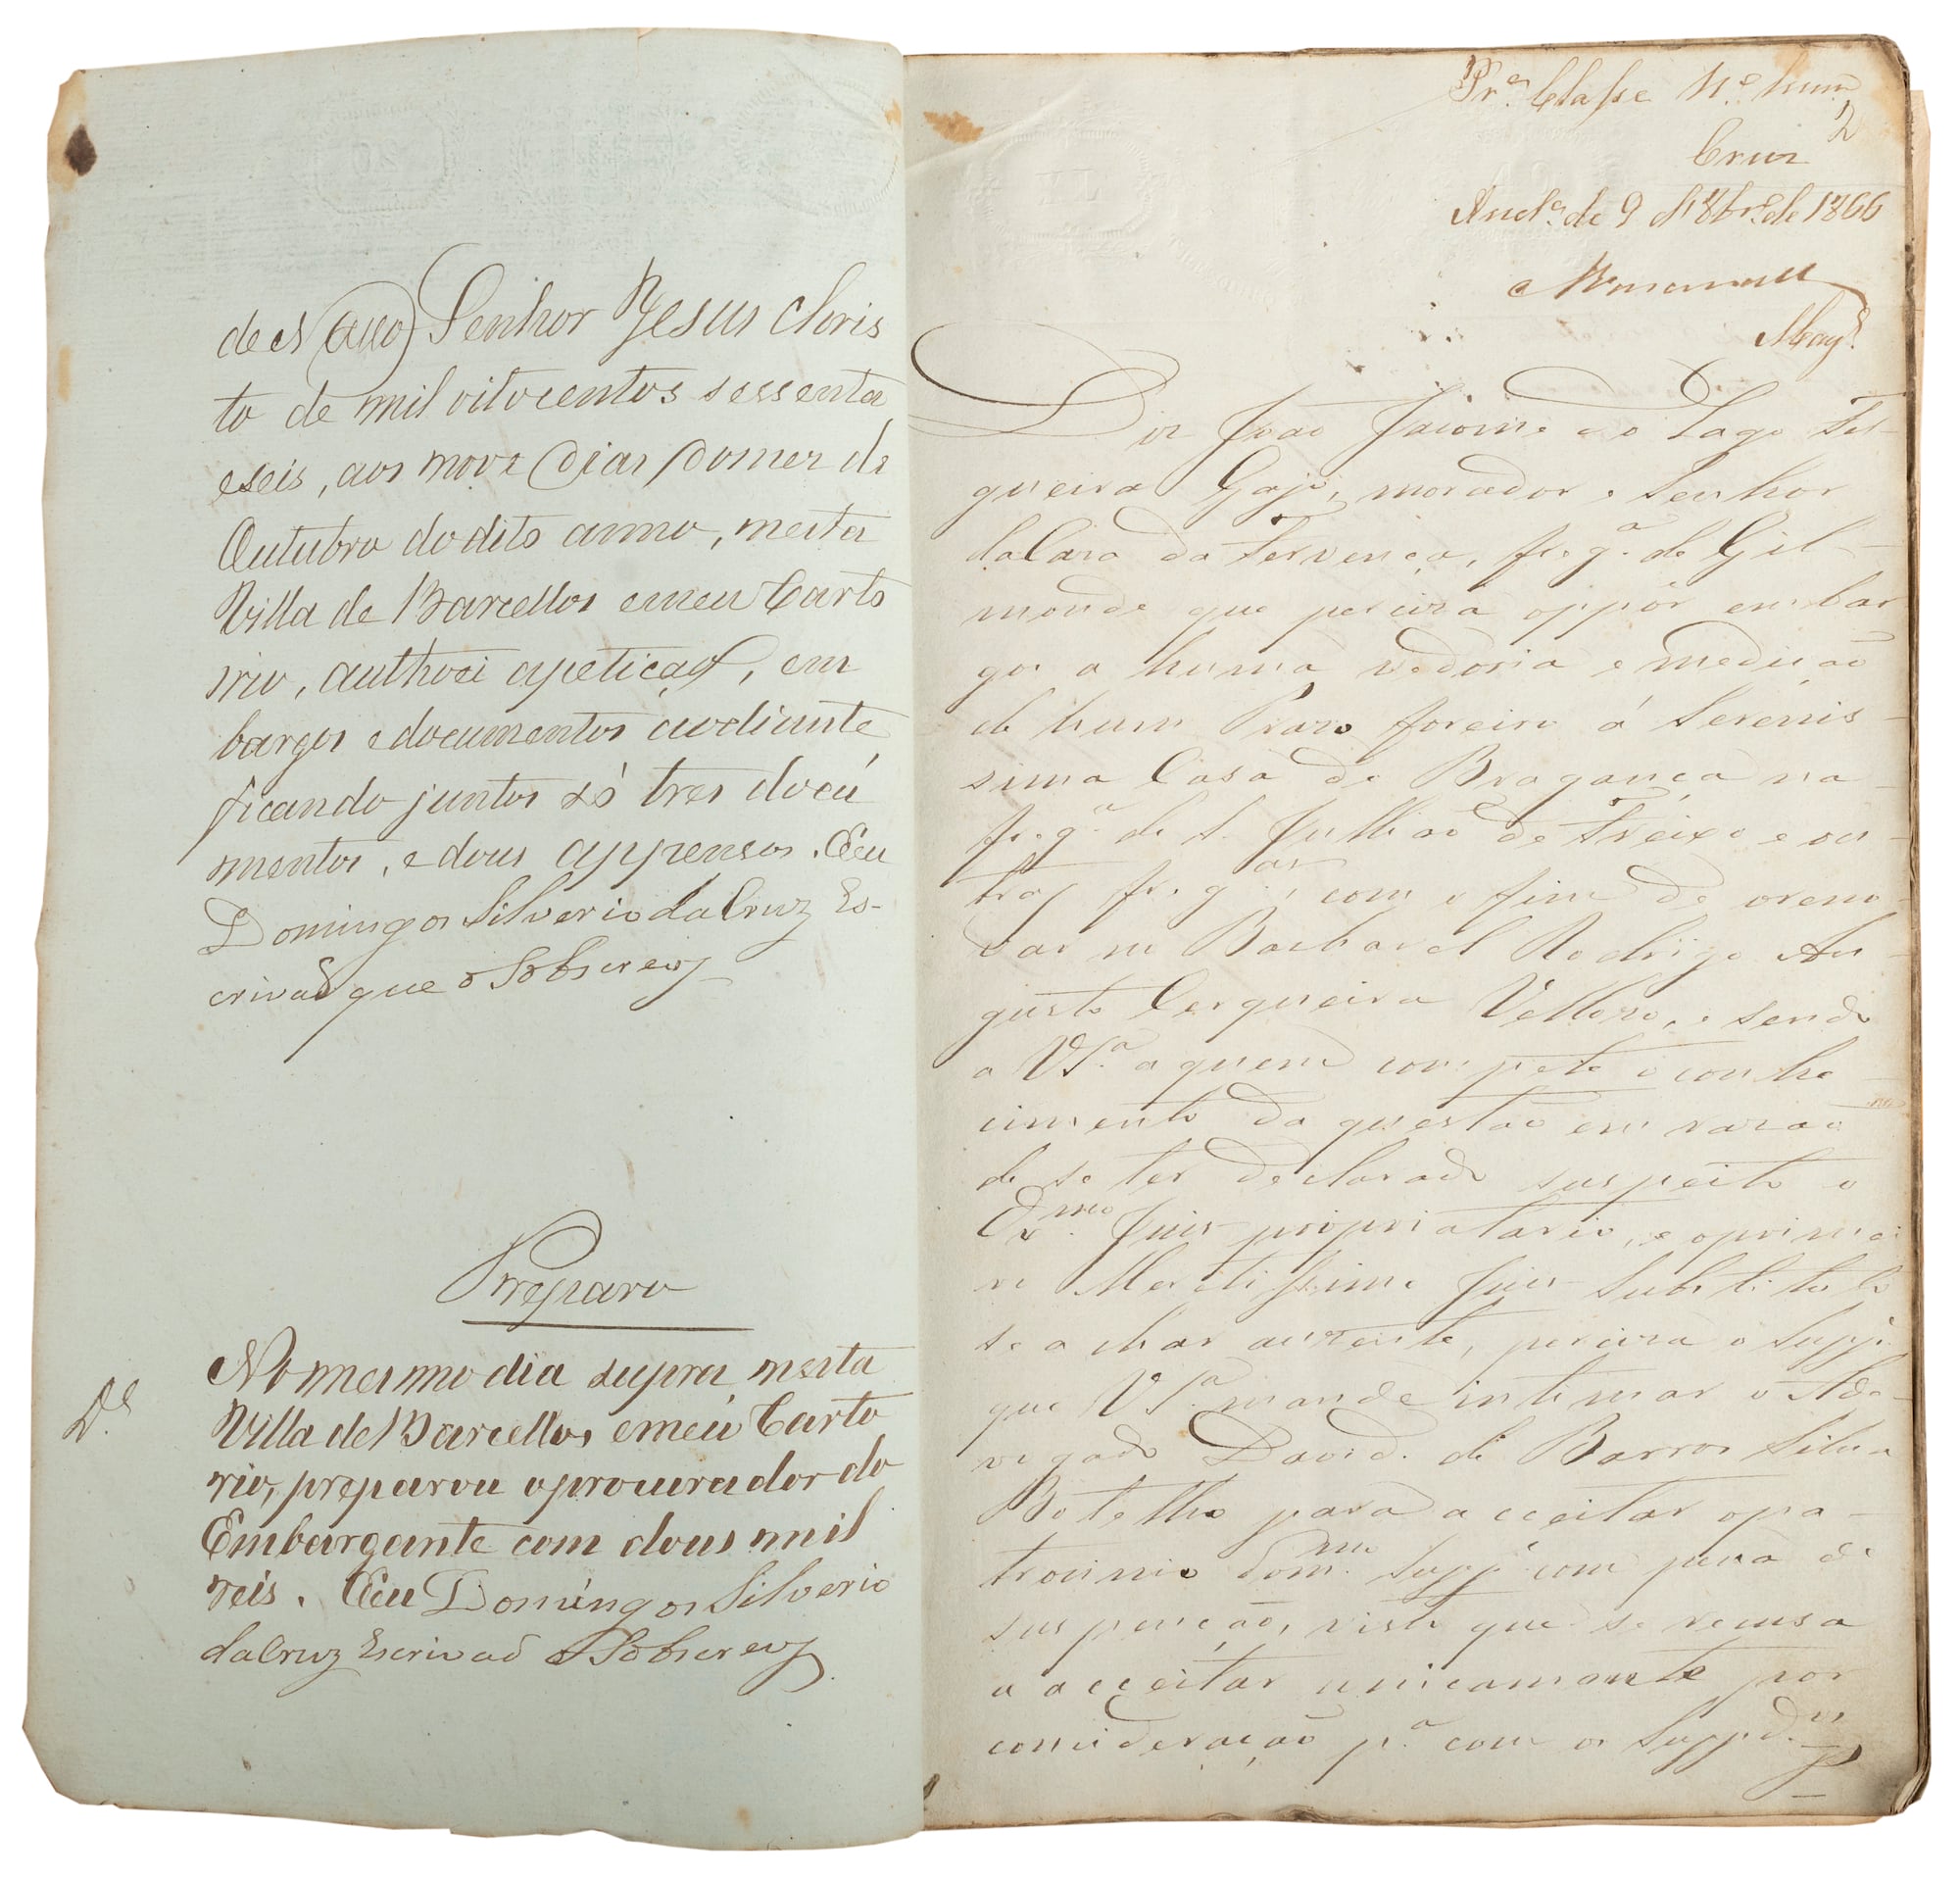 de N (aõo) Senhor Jesus Chris
to de mil oitocentos sessenta
eseis, aos nove dias domez de
Outubro do dito anno, nesta
Villa de Barcellos emeu Carto
rio, authoei apetição, em
bargos edocumentos aodiante
ficando juntos só tres docu
mentos, e dous appensos. Eeu
Domingos Silverio da Cruz Es-
crivaõ que o Sobscrevy
Preparo
D.s
No mesmo dia supra nesta
Villa de Barcellos emeu Carto
rio, preparou oprocurador do
Embargante com dous mil
reis. Eeu Domingos Silverio
da Cruz Escrivaõ o Sobscrevy
Pr.a Classe N.o hum
2
Cruz
Aud.a de 9 d'8br.o de 1866
Diz João Jacome do Lago Fel-
gueira Gajo, morador e Senhor
da Casa da Fervença, freg.a de Gil-
monde que perciza oppôr embar
gos a huma vedoria e medição
de hum Prazo foreiro á Serenis-
sima Casa de Bragança na
freg.a de S. Julliaõ de Freixo e ou-
tras freg.as, com o fim de oreno-
var no Bacharel Rodrigo Au-
gusto Cerqueira Velloso, e sendo
a VS.a aquem compete o conhe-
cimento da questaõ em razaõ
de se ter declarado suspeito o
Ex.mo Juis propriatario, e oprimei
ro Meretissimo Juis Substituto
se achar auzente, perciza o Supp.e
que VS.a mande intimar o Adv-
vogado David de Barros Silva
Botelho para acceitar opa-
trocinio do m.mo Supp.e com pena de
suspenção, visto que se recusa
a acceitar unicamente por
consideração p.a com os Suppd.os